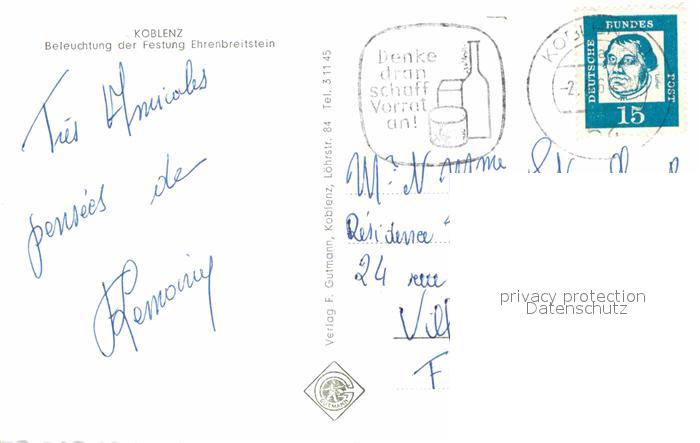 KOBLENZ
Beleuchtung der Festung Ehrenbreitstein
Très Amicales
pensées de
Verlag F. Gutmann, Koblenz, Löhrstr. 84 Tel. 31145
GUTMANN
Denke
dran
schaff
Vorrat
an!
KOBL
-2.
DEUTSCHE BUNDESPOST
15
Mr Mme
Résidence
24 rue
Vill
F
privacy protection
Datenschutz